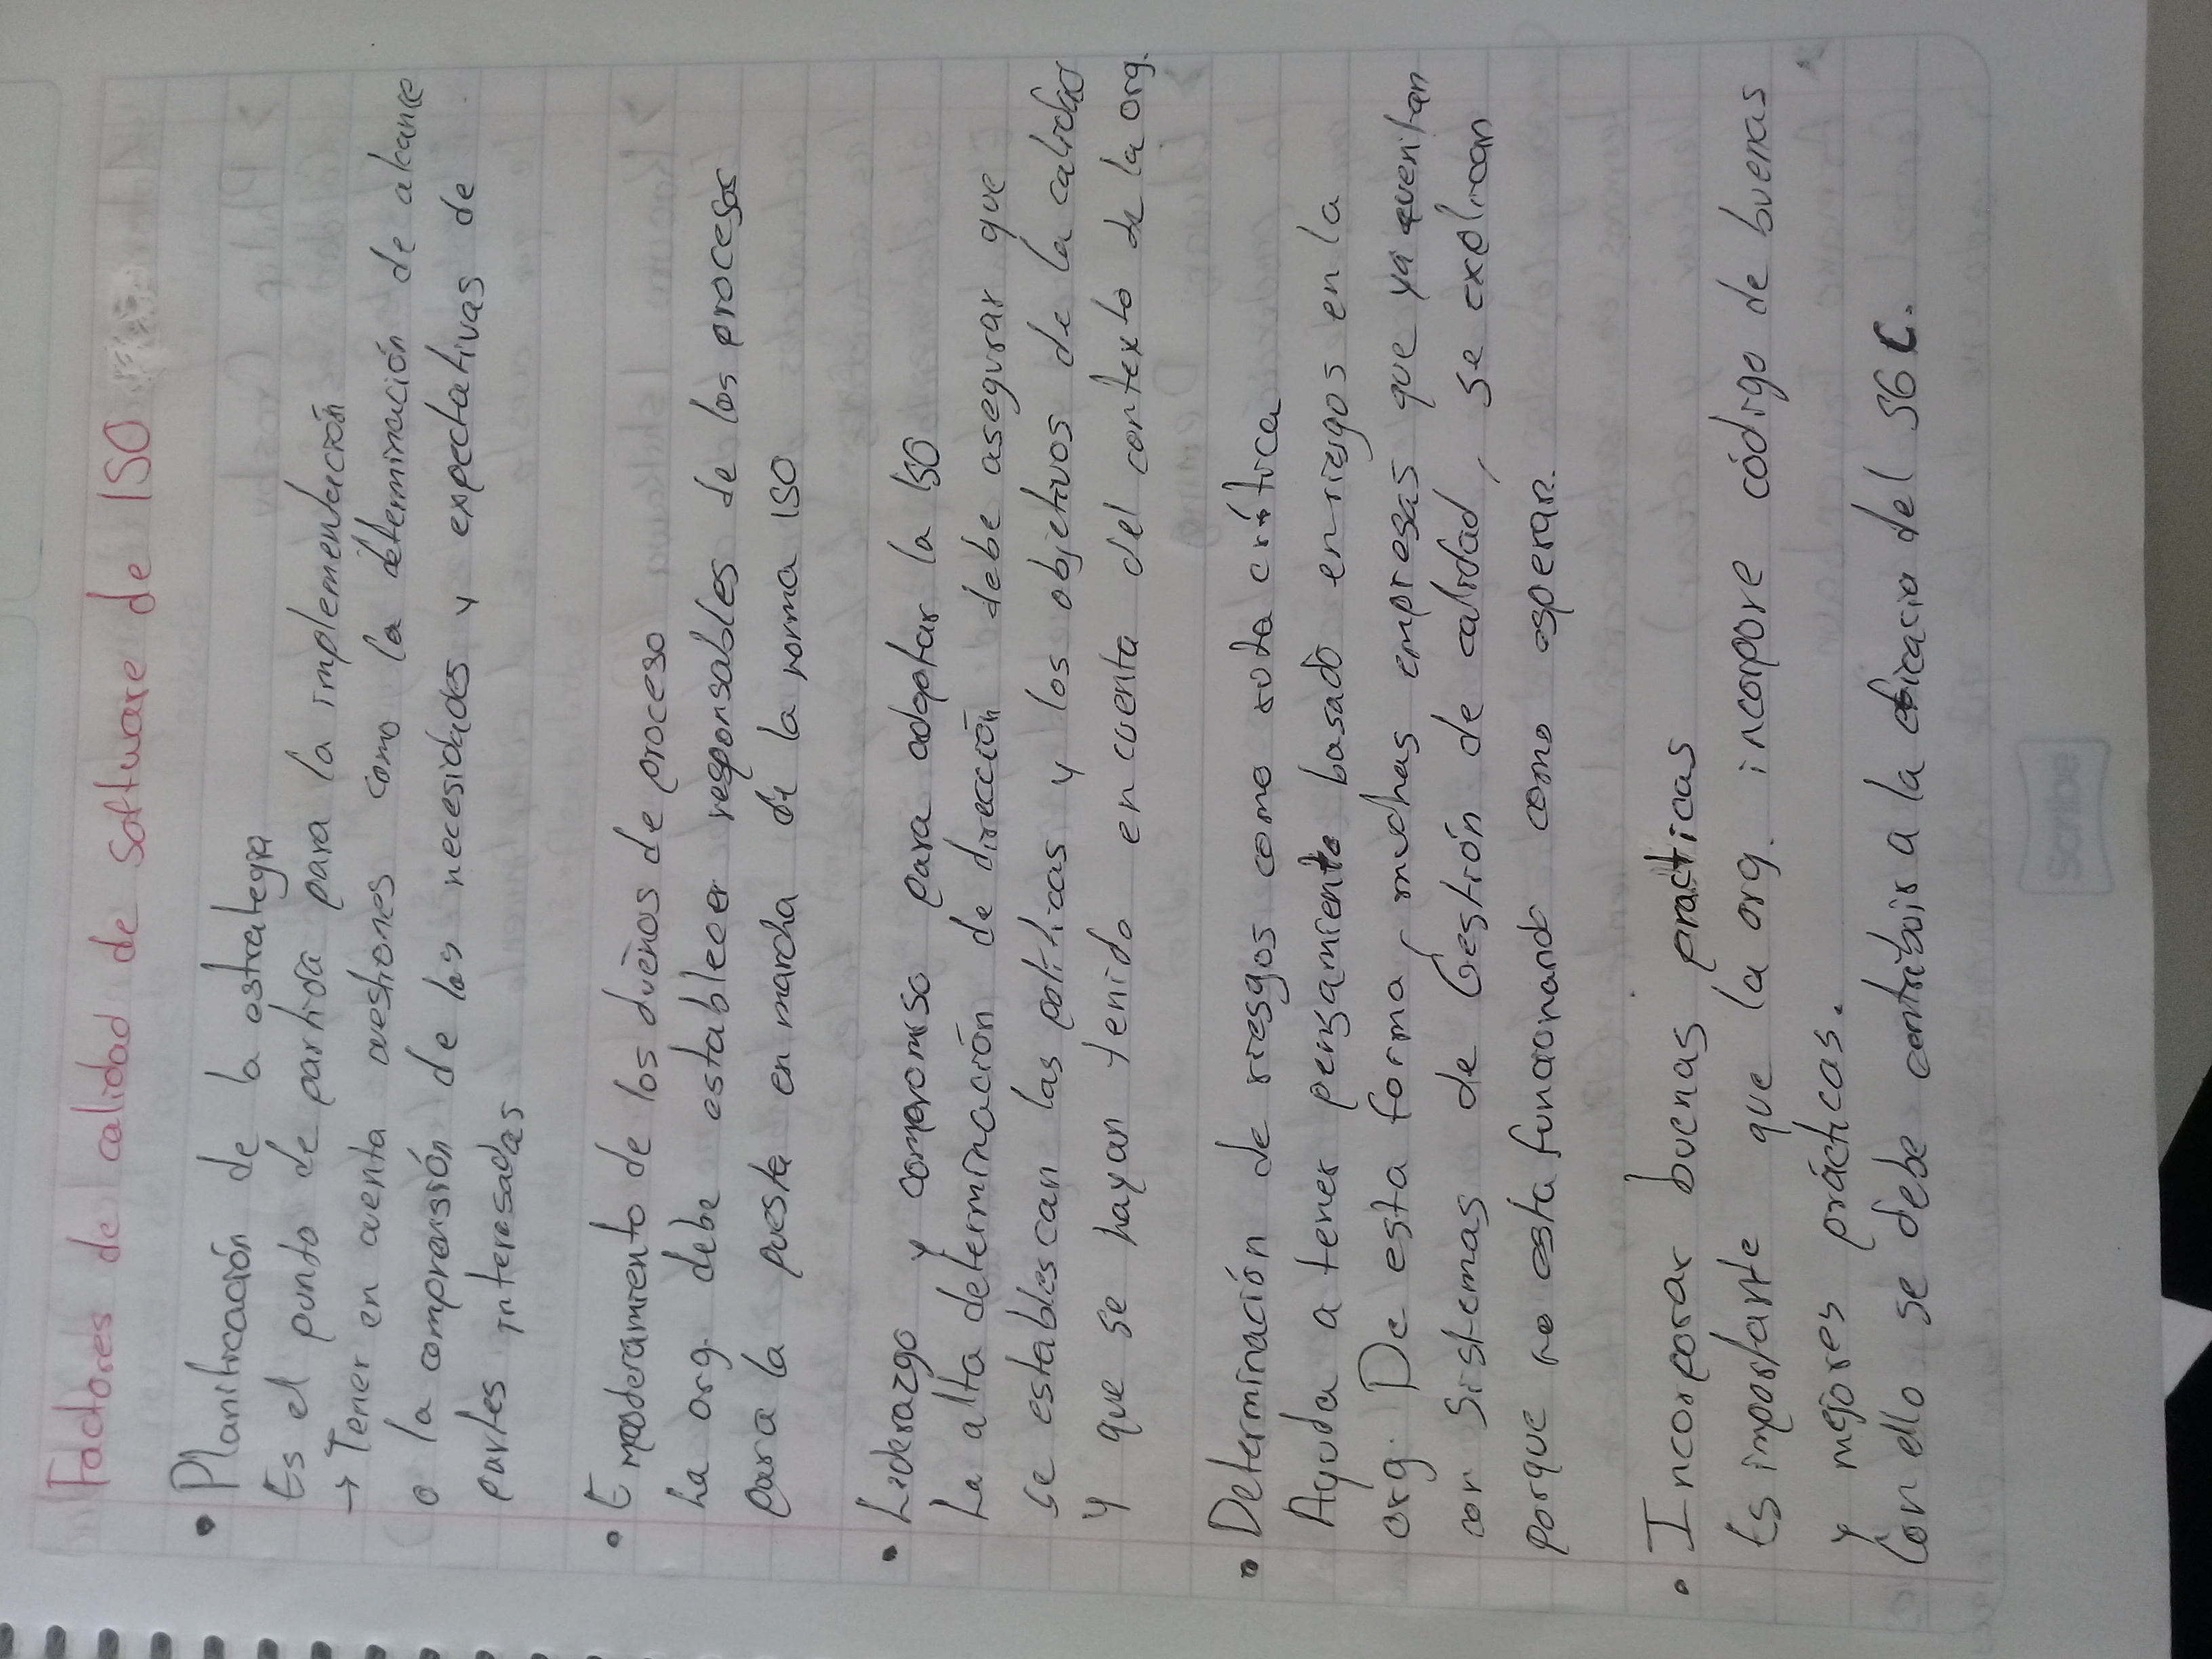 Factores de calidad de software de ISO
• Planificación de la estrategia
Es el punto de partida para la implementación
→ Tener en cuenta cuestiones como la determinación de alcance
o la comprensión de las necesidades y expectativas de
partes interesadas
• Emoderamiento de los dueños de proceso
La org. debe establecer responsables de los procesos
para la puesta en marcha de la norma ISO
• Liderazgo y compromiso para adoptar la ISO
La alta determinación de dirección debe asegurar que
se establescan las políticas y los objetivos de la calidad
y que se hayan tenido en cuenta del contexto de la org.
• Determinación de riesgos como ruta crítica
Ayuda a tener pensamiento basado en riesgos en la
org. De esta forma, muchas empresas que ya cuentan
con Sistemas de Gestión de calidad, se explican
porque no esta funcionando como esperan.
• Incorporar buenas practicas
Es importante que la org. incorpore código de buenas
y mejores prácticas.
Con ello se debe contribuir a la eficacia del SGC.
Scribe